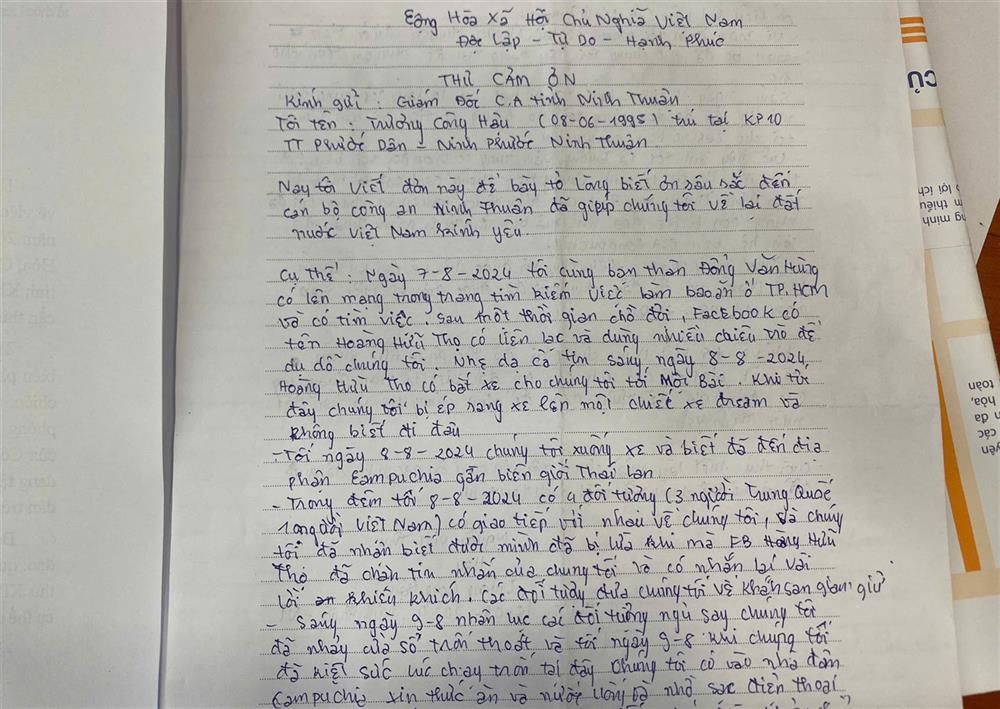 Cộng Hòa Xã Hội Chủ Nghĩa Việt Nam
Độc Lập - Tự Do - Hạnh Phúc
THƯ CẢM ƠN
Kính gửi : Giám Đốc C.A tỉnh Ninh Thuận
Tôi tên : Trương Công Hậu (08-06-1995) trú tại KP10
TT Phước Dân - Ninh Phước Ninh Thuận.
Nay tôi viết đơn này để bày tỏ lòng biết ơn sâu sắc đến
cán bộ công an Ninh Thuận đã giúp chúng tôi về lại đất
nước Việt Nam thân yêu.
Cụ thể : Ngày 7-8-2024 tôi cùng bạn thân Đồng Văn Hùng
có lên mạng trong trang tìm kiếm việc làm bao ăn ở TP.HCM
và có tìm việc. Sau một thời gian chờ đợi, FaceBook có
tên Hoàng Hữu Thọ có liên lạc và dùng nhiều chiêu trò để
dụ dỗ chúng tôi. Nhẹ dạ cả tin sáng ngày 8-8-2024
Hoàng Hữu Thọ có bắt xe cho chúng tôi tới Mộc Bài. Khi tới
đây chúng tôi bị ép sang xe lên một chiếc xe dream và
không biết đi đâu
-Tối ngày 8-8-2024 chúng tôi xuống xe và biết đã đến địa
phận Campuchia gần biên giới Thái Lan
- Trong đêm tối 8-8-2024 có 4 đối tượng (3 người Trung Quốc
1 người Việt Nam) có giao tiếp với nhau về chúng tôi, và chúng
tôi đã nhận biết được mình đã bị lừa khi mà FB Hoàng Hữu
Thọ đã chặn tin nhắn của chúng tôi và có nhắn lại với
lời khiêu khích. Các đối tượng đưa chúng tôi về khách sạn giam giữ
- Sáng ngày 9-8 nhân lúc các đối tượng ngủ say chúng tôi
đã nhảy cửa sổ trốn thoát và tối ngày 9-8 khi chúng tôi
đã kiệt sức lúc chạy trốn tại đây chúng tôi có vào nhà dân
Campuchia xin thức ăn và nước uống và nhờ sạc điện thoại